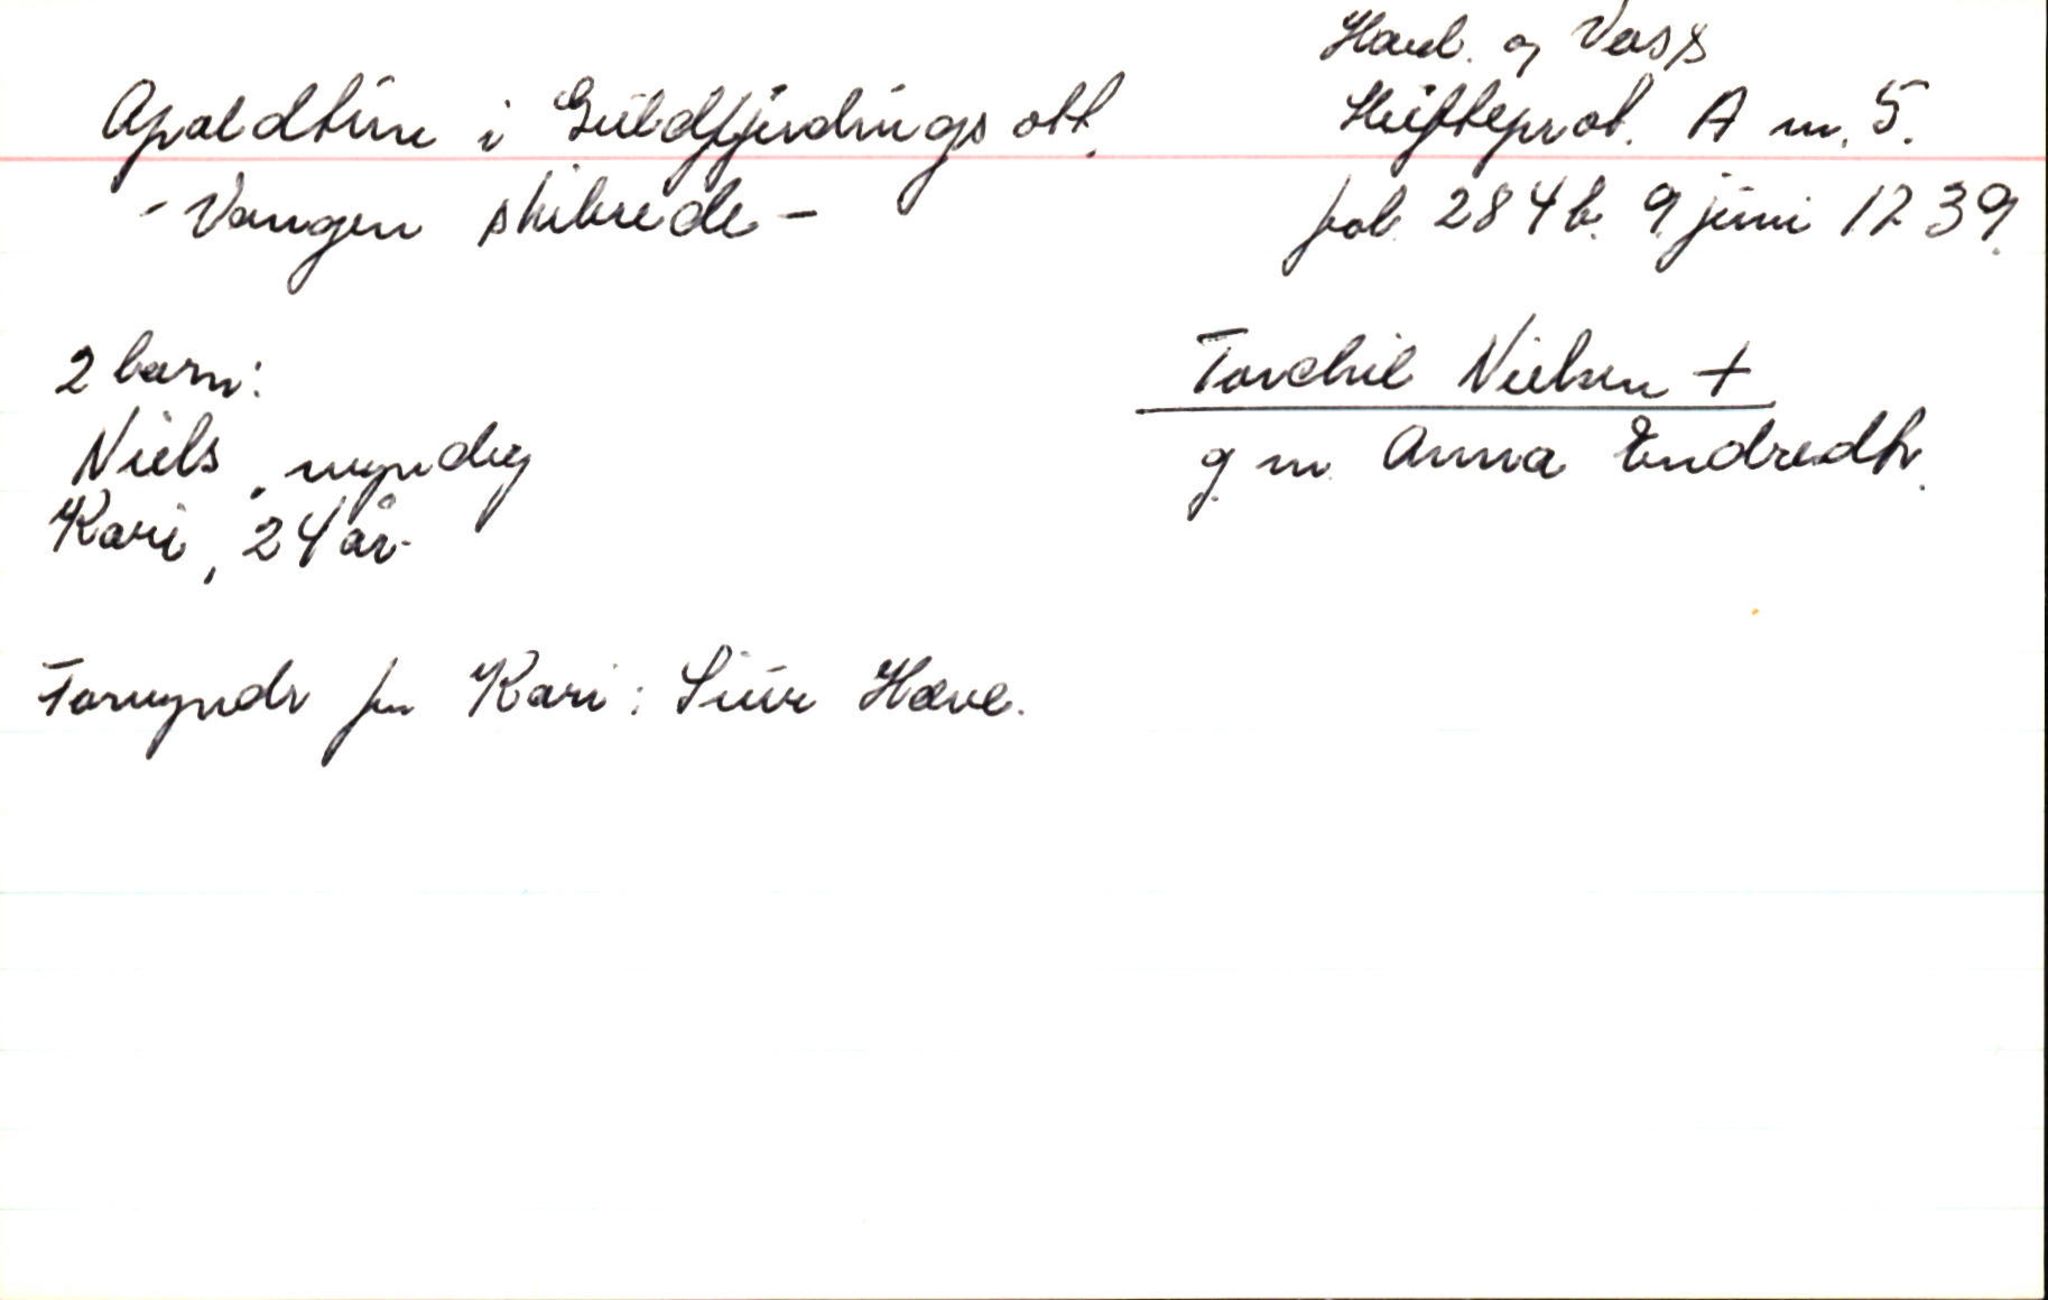 Hard. og Voss
Apaldtun i Guldfjerdings ott.
Skifteprot. A nr. 5.
- Vangen skibrede -
fol. 284 b. 9 juni 1739.
2 barn:
Torchil Nielsen +
Niels, myndig
g. m. Anna Endredtr.
Kari, 24 år.
Formyndr for Kari: Siur Hæve.